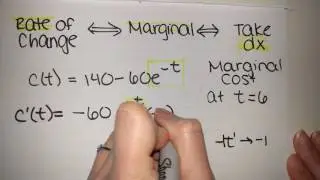 Rate of Change ⟺ Marginal ⟺ Take dx
c(t) = 140 - 60e^-t
Marginal Cost at t = 6
c'(t) = -60
-1t' → -1